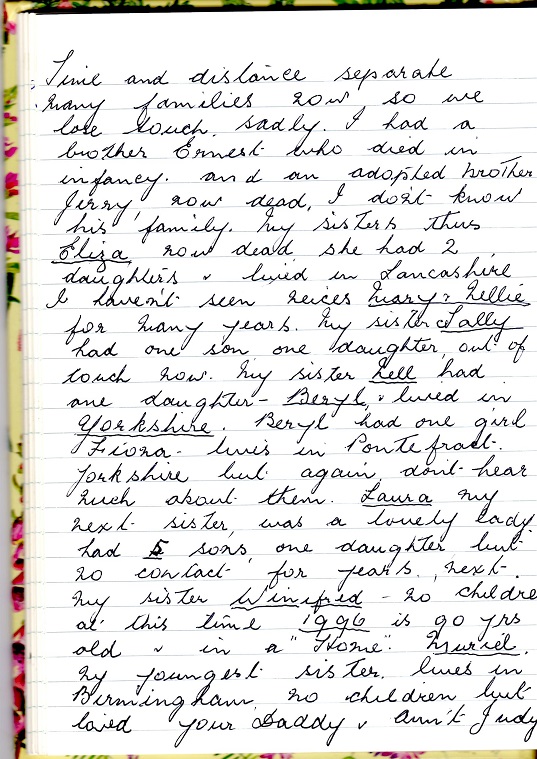 Time and distance separate
many families now, so we
lose touch, sadly. I had a
brother Ernest who died in
infancy. and an adopted brother
Jerry, now dead, I don't know
his family. My sisters thus
Eliza, now dead, she had 2
daughters & lived in Lancashire
I haven't seen neices Mary & Nellie
for many years. My sister Sally
had one son, one daughter, out of
touch now. My sister Nell had
one daughter - Beryl, & lived in
Yorkshire. Beryl had one girl
Fiona - lives in Pontefract.
Yorkshire but again, don't hear
much about them. Laura my
next sister, was a lovely lady
had 5 sons, one daughter but
no contact for years, next
my sister Winifred - no childre
at this time 1996 is 90 yrs
old & in a "Home". Muriel,
my youngest sister. lives in
Birmingham, no children but
loved your Daddy & Aun't Judy